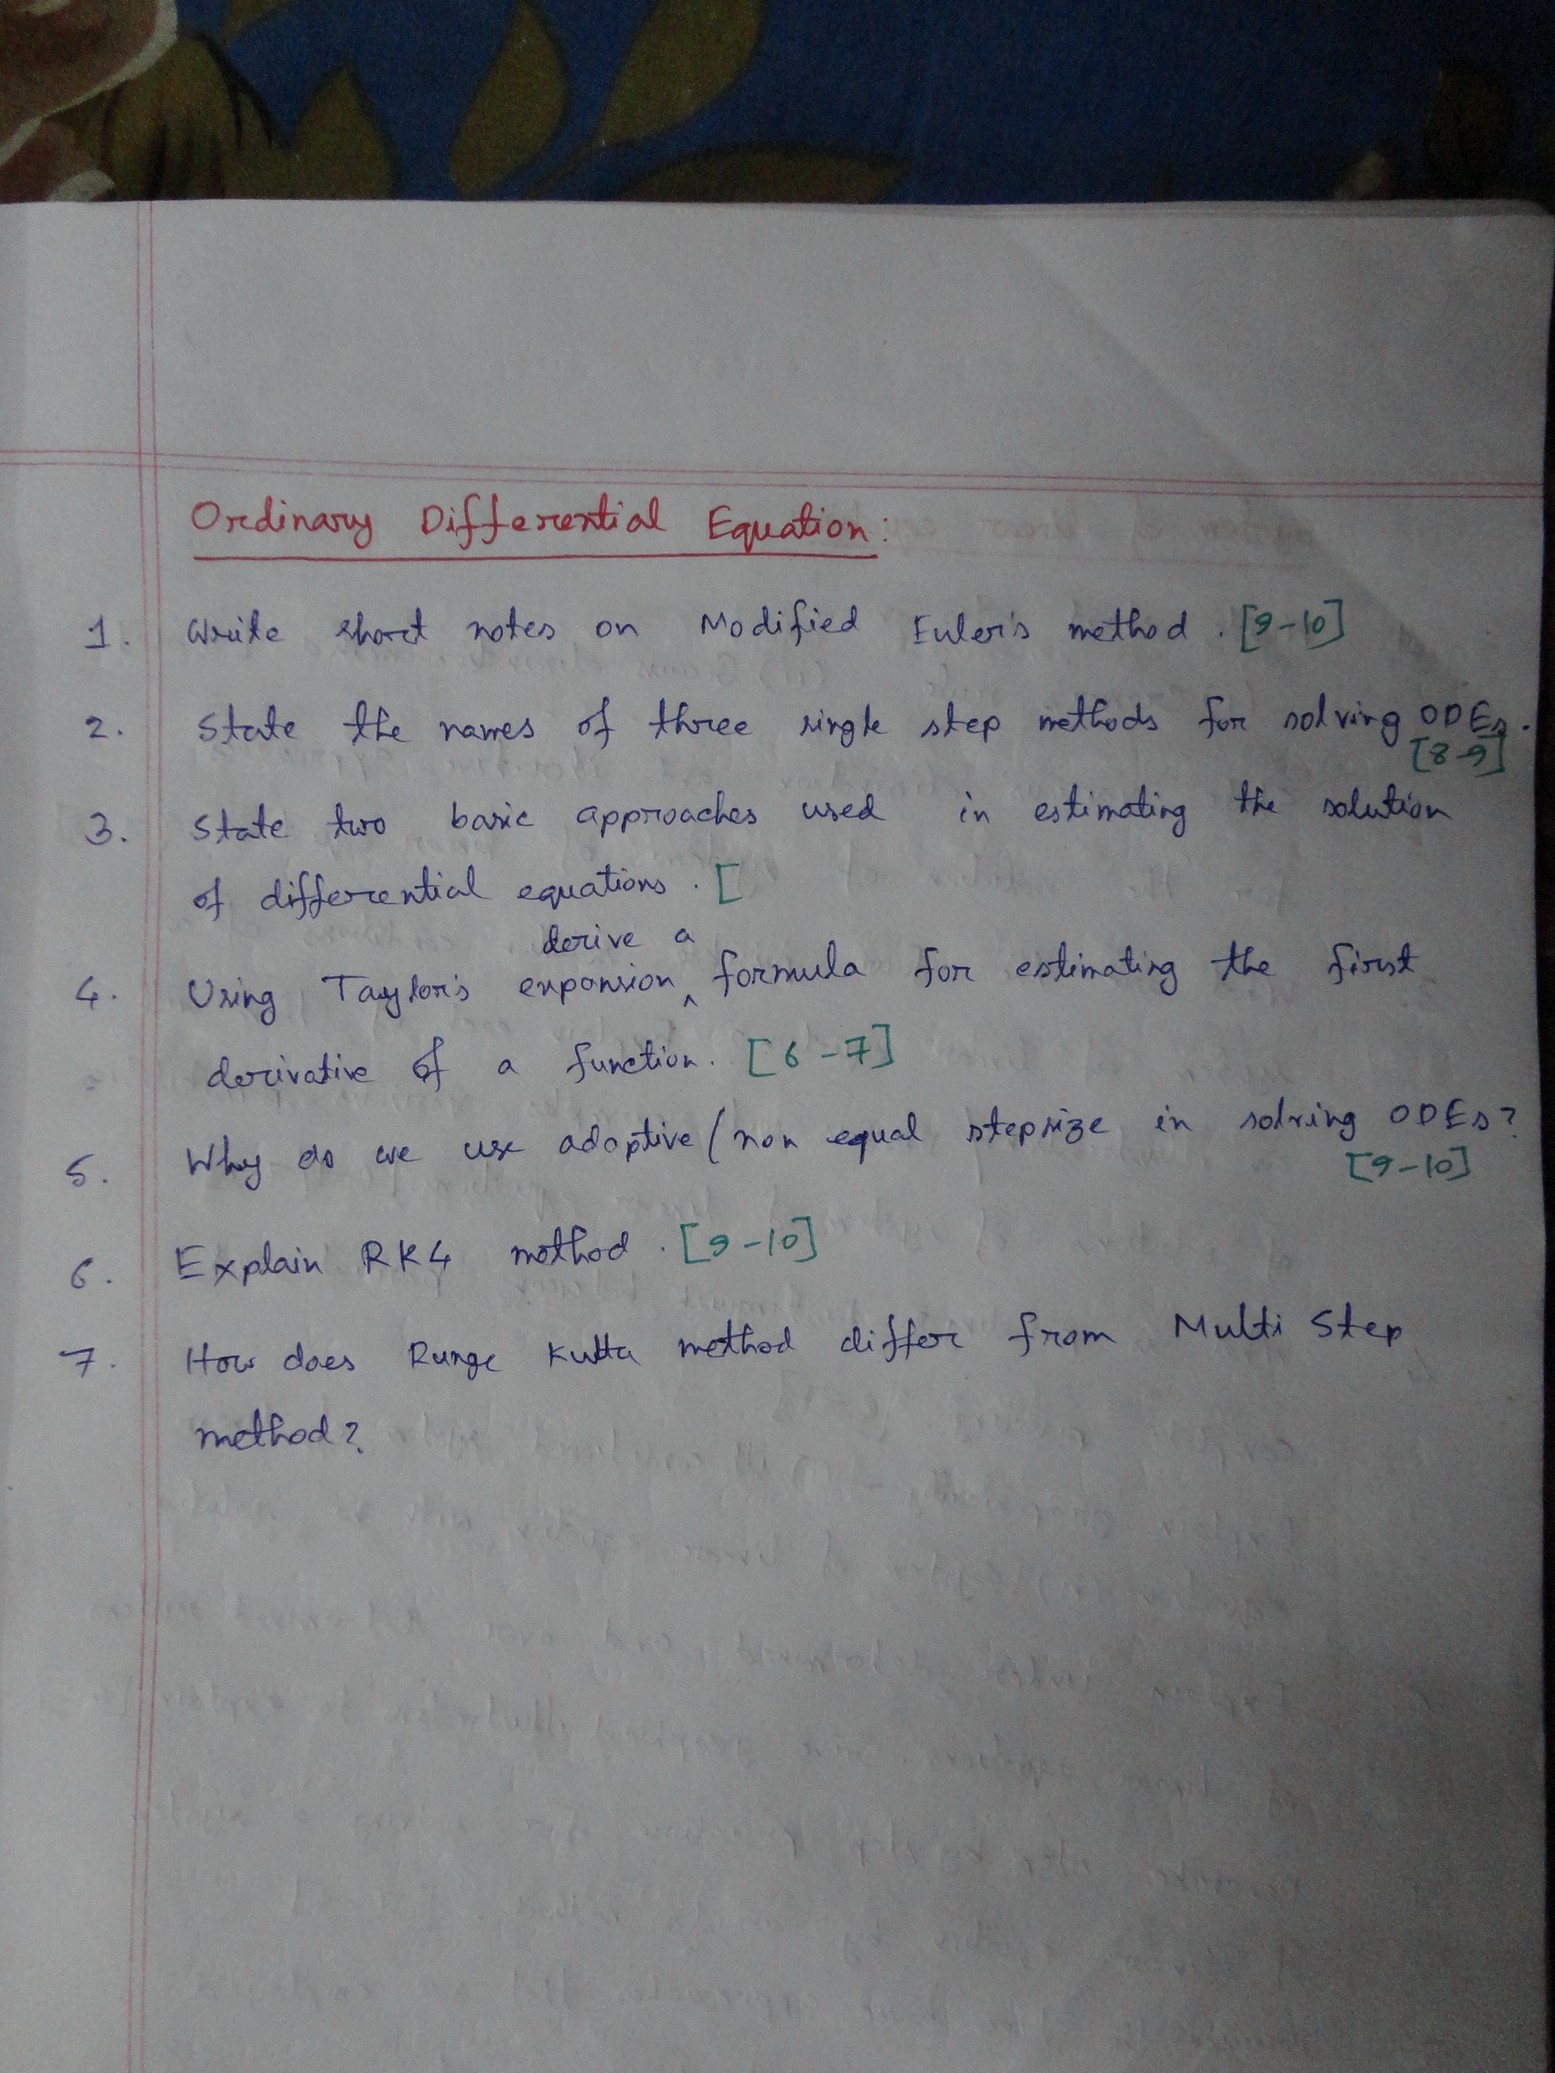 Ordinary Differential Equation:
1. Write short notes on Modified Euler's method. [9-10]
2. State the names of three single step methods for solving ODEs.
[8-9]
3. State two basic approaches used in estimating the solution
of differential equations. [
derive a
4. Using Taylor's expansion ^ formula for estimating the first
derivative of a function. [6-7]
5. Why do we use adaptive/non equal stepsize in solving ODEs?
[9-10]
6. Explain RK4 method. [9-10]
7. How does Runge Kutta method differ from Multi Step
method?